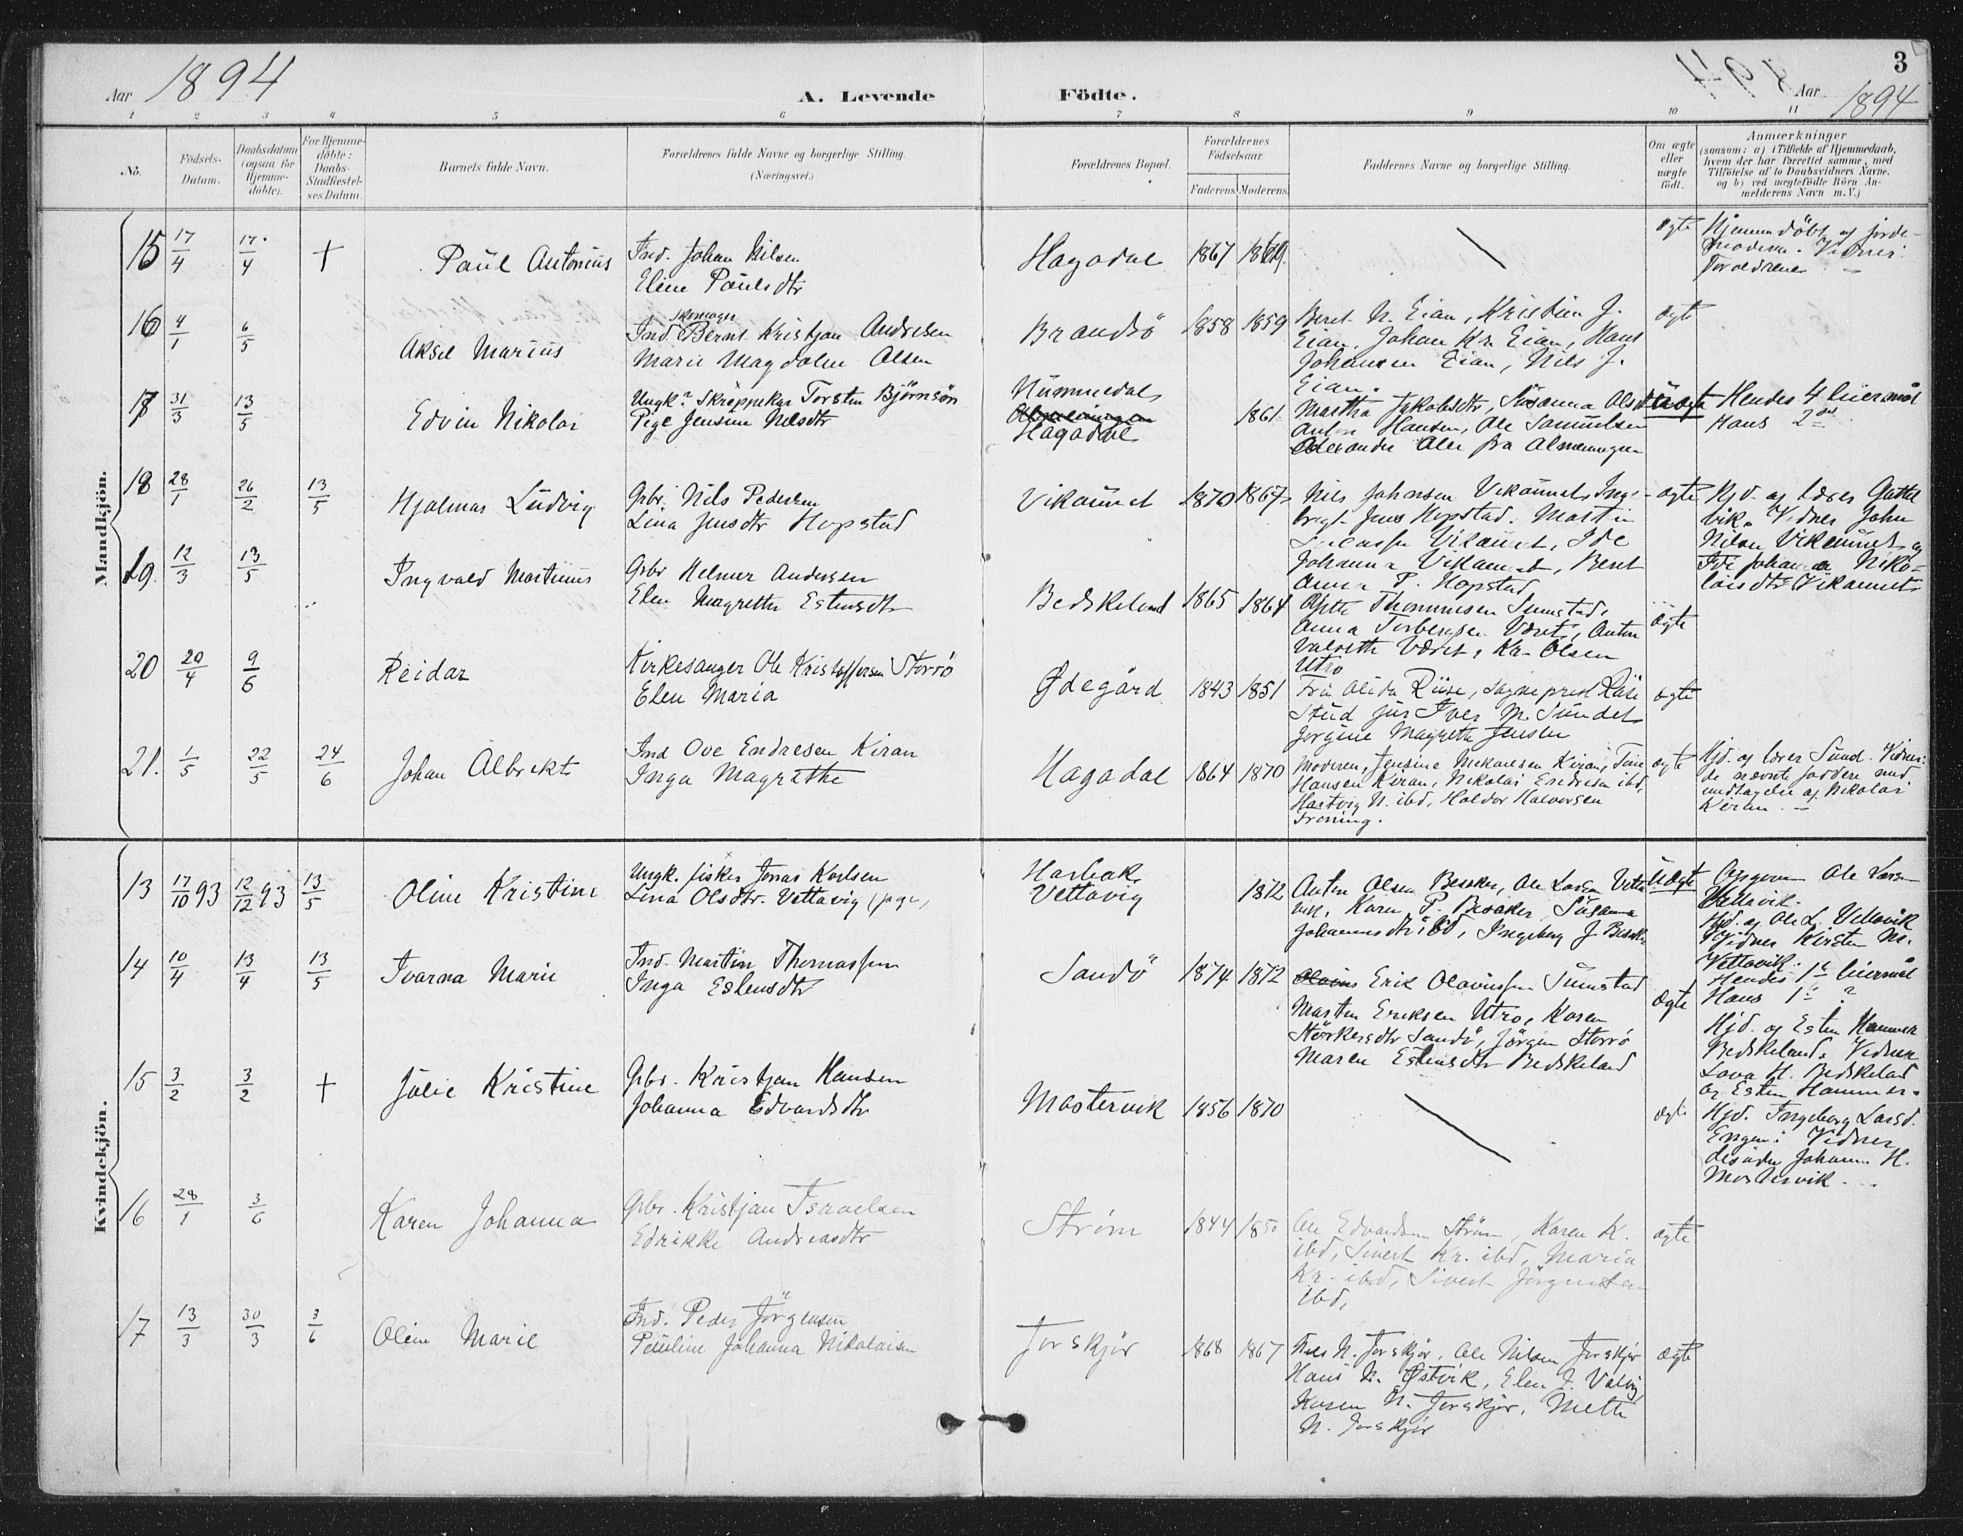 1894
Aar
A. Levende
Födte.
Aar 1894
3
1 2 3 4 5 6 7 8 9 10 11
No.
Födsels-
Datum.
Daabsdatum
(ogsaa for
Hjemme-
döbte).
For Hjemme-
döbte:
Daabs-
Stadfæstel-
ses Datum.
Barnets fulde Navn.
Forældrenes fulde Navne og borgerlige Stilling.
(Næringsvei.)
Forældrenes Bopæl.
Forældrenes
Födselsaar.
Faderens Moderens
Faddernes Navne og borgerlige Stilling.
Om ægte
eller
uægte
født.
Anmærkninger
(saasom: a) i Tilfælde af Hjemmedaab,
hvem der har forrettet samme, med
Tilföielse af to Daabsvidners Navne,
og b) ved uægtefödte Börn An-
melderens Navn m.V.)
Mandkjön.
15 17/4 17/4 + Paul Antonius
Ind. Johan Nilsen
Eline Paulsdtr
Hagadal 1867
ægte
Hjemmedöbt af jorde-
moderen. Vidner:
Forældrene
16 4/1 6/5 Aksel Marius
Skomager
Ind. Bernt Kristjan Andresen
Marie Magdalen Olsen
Brandsö 1858 1859
Beret N. Eian, Kristian J.
Eian, Johan Kr. Eian, Hans
Johansen Eian, Nils J.
Eian.
ægte
17 31/3 13/5 Edvin Nikolai
Ungk. Torsten Björnsön
Pige Jensine Nilsdtr
Nummedal
Hagadal 1861
Martha Jakobsdtr, Susanna Olsdtr
Anton Hansen, Ole Samuelsen
fra Almenningen
uægte
Hendes 4 leiermål
Hans 2det
18 28/1 26/2 13/5 Hjalmar Ludvig
Gbr. Nils Pedersen
Lina Jensdtr Hopstad
Vikaunet 1870 1867
Nils Johnsen Vikaunet, Inge-
brigt Jens Hopstad. Martin
Vikaunet, Ide
Johanna Vikaunet, Beret
Anna P. Hopstad
ægte
Hjd. af Lærer Guttel
vik. Vidner John
Nilsen Vikaunet og
Ide Johanna Niko-
laisdtr Vikaunet
19. 12/3 13/5 Ingvald Martinus
Gbr. Helmer Andersen
Elen Magrethe Estensdtr
Bedskeland 1865 1864
Thommesen Sumstad,
Anna Torbergsen Været, Anton
Været, Kr. Olsen
Utro
ægte
20 20/4 9/6 Reidar
Kirkesanger Ole Kristoffersen Storrö
Elen Maria
Ødegård 1843 1851
Fru Alida Riise, Sogneprest Riise
Stud jur Iver M. Sundet
Jorgine Magrethe Jensen
ægte
21. 1/5 22/5 24/6 Johan Albrekt
Ind Ove Endresen Kiran
Inga Magrethe
Hagadal 1864 1870
Moderen, Jensine Mikalsen Kiran, Tine
Hansen Kiran, Nikolai Endresen ibd,
Hartvig N. ibd, Haldor Halvorsen
Froning.
ægte
Hjd. af lærer Sund. Vidner:
de nævnte faddere med
undtagelse af Nikolai
Kiran.
Kvindekjön.
13 17/10 93 12/12 93 13/5 Oline Kristine
Ungk. fisker Jonas Karlsen
Lina Olsdtr. Vettavig (pige)
Harbak
Vettavig 1872
Anton Olsen Besaker, Ole Larsen Vetta
vik, Karen P. Besaker, Susanna
Johannesdtr ibd, Ingeborg J. Besaker
Uægte
Opgiven Ole Larsen
Vettavik.
Hjd. af Ole L. Vettavik
Vidner Kirsten N.
Vettavik.
Hendes 1ste leiermål
Hans 1ste ?
14 10/4 13/4 13/5 Ivarna Marie
Ind. Martin Thomassen
Inga Estensdtr
Sandö 1874 1872
Erik Olavussen Sumstad
Martin Eriksen Utro, Karen
Störkersdtr Sandö, Jörgen Storrö
Maren Estensdtr Bedskeland
Ægte
Hjd. af Esten Hammer
Bedskeland. Vidner
Lava H. Bedskeland
og Esten Hammer.
15 3/2 3/2 + Julie Kristine
Gbr. Kristjan Hansen
Johanna Edvardsdtr
Mastervik 1856 1870
ægte
Hjd. Ingeborg Larsd.
Engen. Vidner
desuden Johan H.
Mastervik.
16 28/1 3/6 Karen Johanna
Gbr. Kristjan Israelsen
Edrikke Andreasdtr
Strøm 1844 1850
Ole Edvardsen Strøm, Karen K.
ibd, Sivert Kr. ibd, Maria
Kr. ibd, Sivert Jörgensen
ibd,
ægte
17 13/3 30/3 3/6 Oline Marie
Ind. Peder Jörgensen
Pauline Johanna Nikolaisen
Torskjør 1868 1867
Nils N. Torskjør, Ole Nilsen Torskjør
Hans N. Østvik, Elen J. Valvig
Karen N. Torskjør, Mette
N. Torskjør
ægte